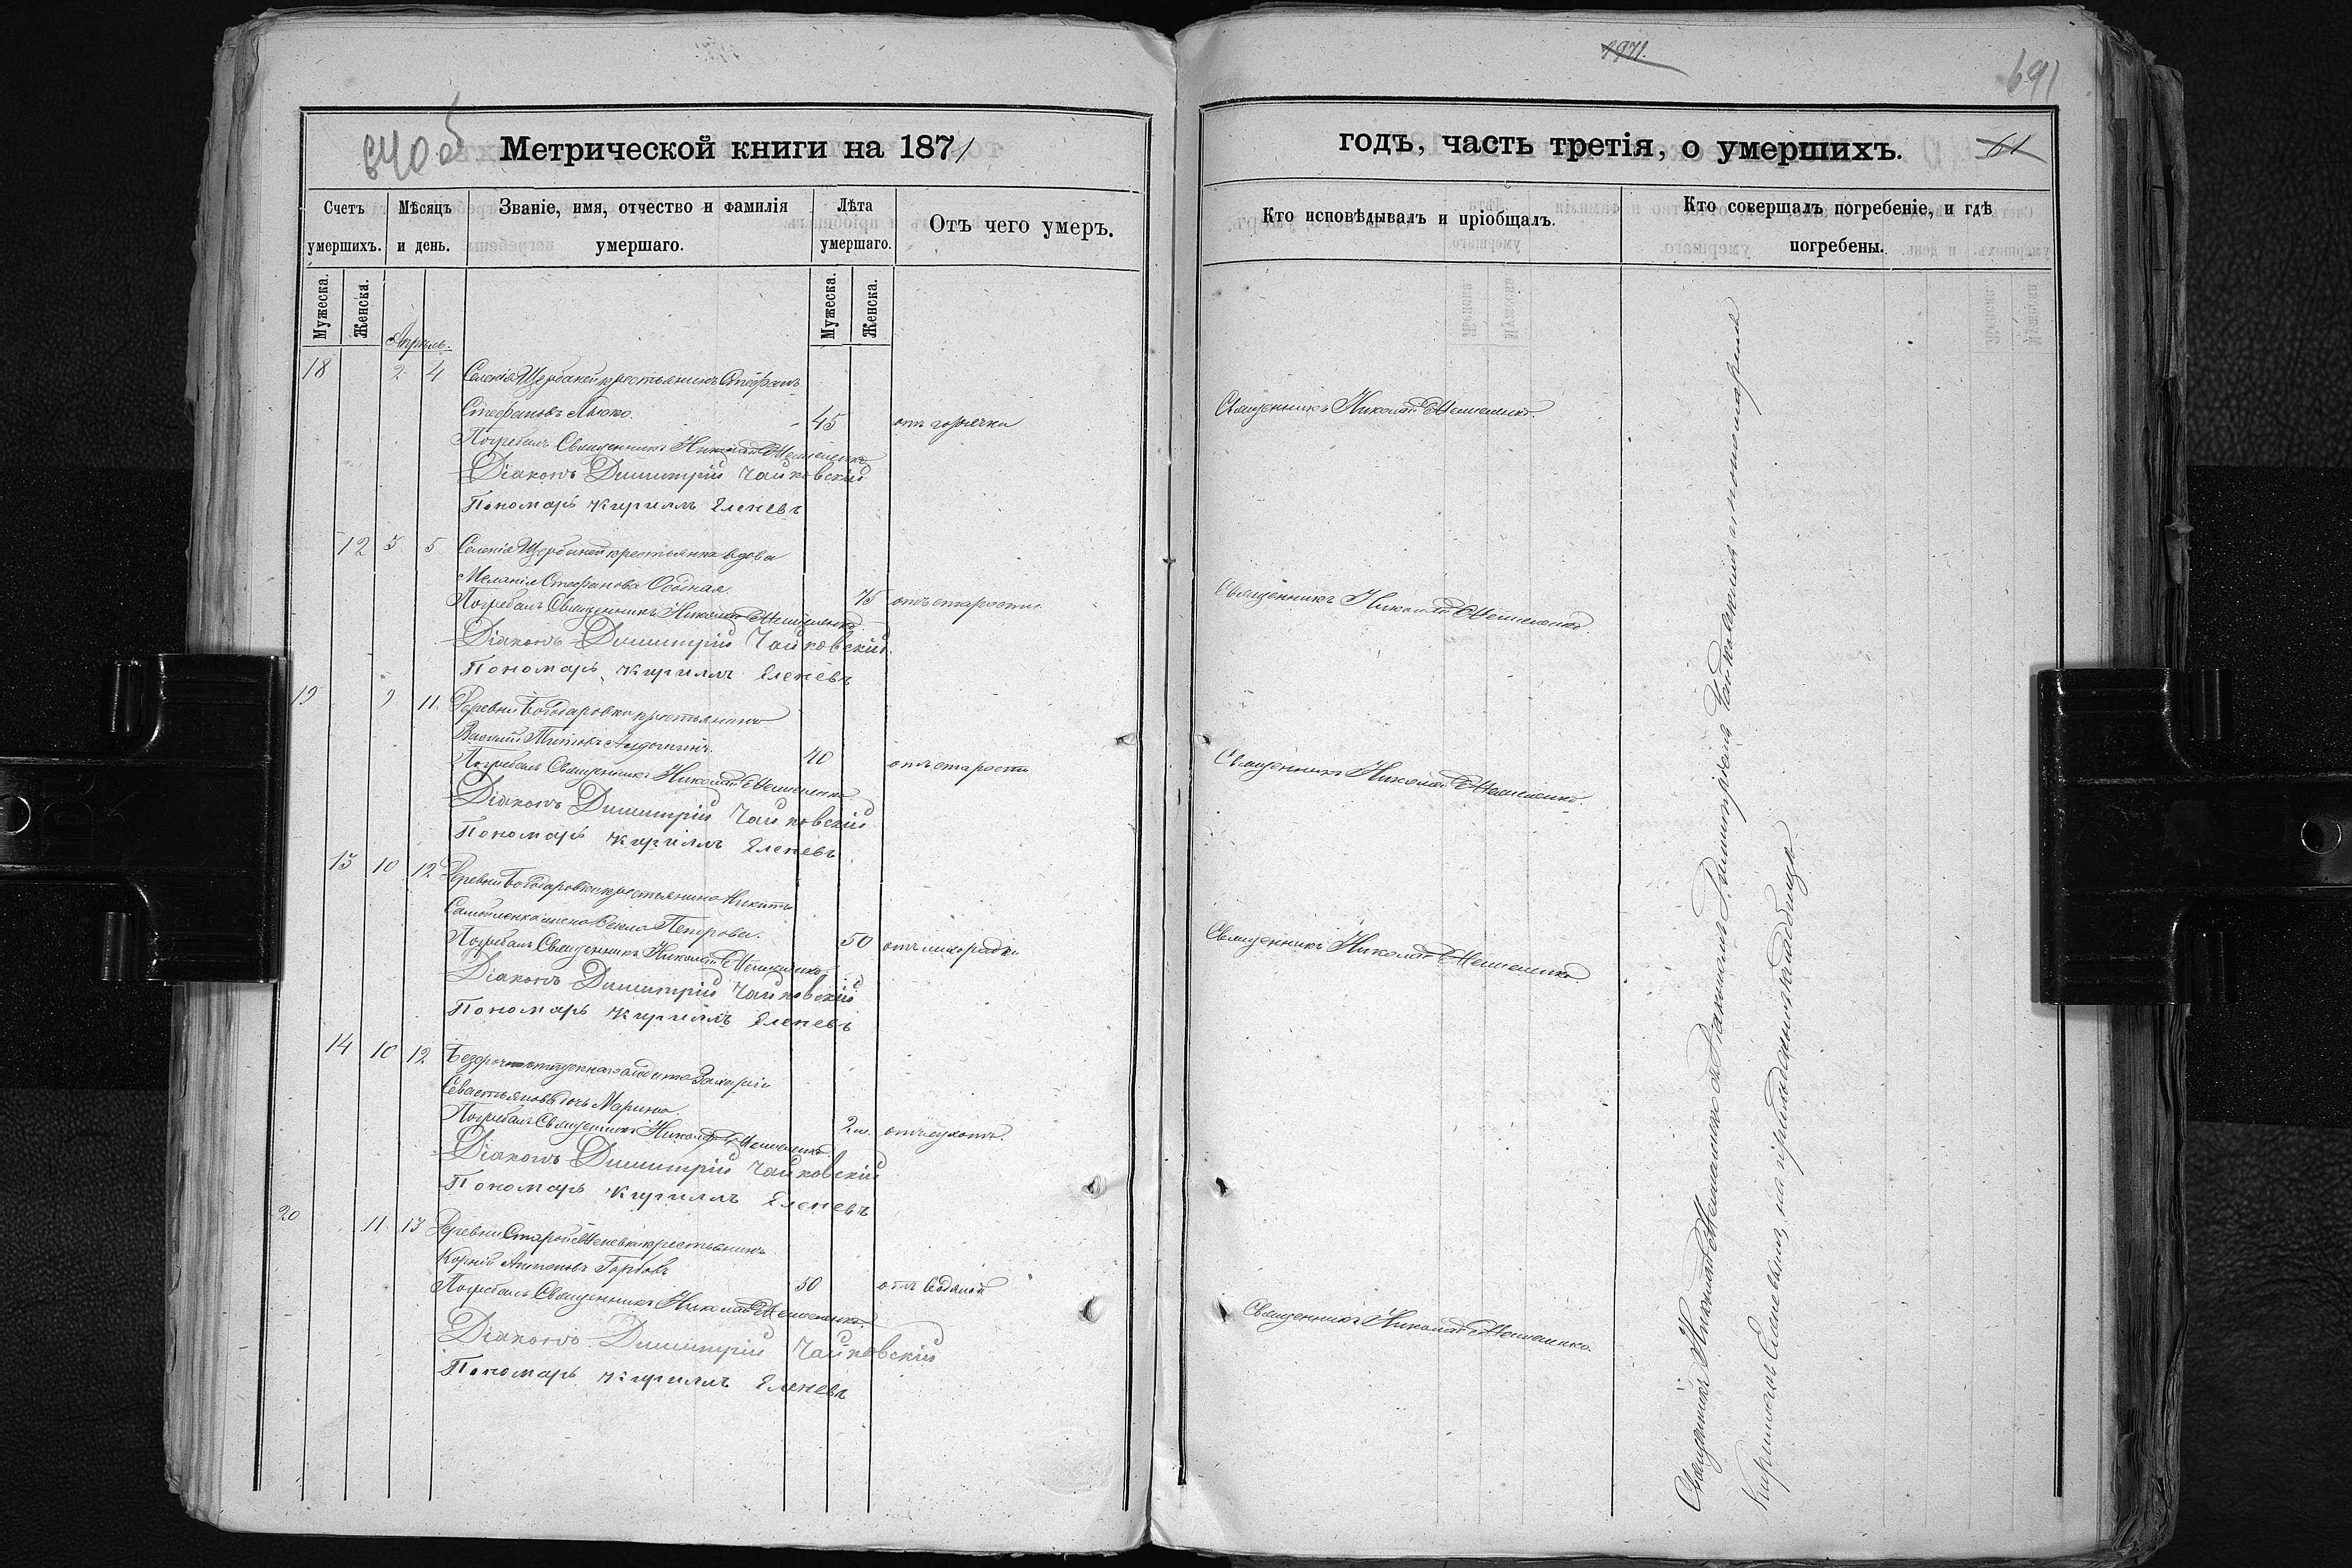 640 об
Метрической книги на 1871
Счетъ умершихъ.
Мѣсяцъ и день.
Званіе, имя, отчество и фамилія умершаго.
Лѣта умершаго.
Отъ чего умеръ.
Мужеска.
Женска.
Мужеска.
Женска.
Апрѣль.
18 2 4 Селенія Щербаней крестьянинъ Стефанъ
Стефановъ 45 отъ горячки
Погребалъ Священникъ Николай
Діаконъ Димитрій Чайковскій
Пономарь Кириллъ Еленевъ
12 5 5 Селенія Щербаней крестьянка вдова
Меланія Стефанова 75 отъ старости
Погребалъ Священникъ Николай
Діаконъ Димитрій Чайковскій.
Пономарь Кириллъ Еленевъ
19 9 11 Деревни Богодаровки крестьянинъ
Василій 70 отъ старости
Погребалъ Священникъ Николай
Діаконъ Димитрій Чайковскій
Пономарь Кириллъ Еленевъ
13 10 12 Деревни Богодаровки крестьянина Никиты
жена Петрова. 50 отъ лихорадки
Погребалъ Священникъ Николай
Діаконъ Димитрій Чайковскій
Пономарь Кириллъ Еленевъ
14 10 12 Безсрочноотпускнаго солдата Захарія
Севастьянова дочь Марина. 2 м. отъ сухотъ.
Погребалъ Священникъ Николай
Діаконъ Димитрій Чайковскій
Пономарь Кириллъ Еленевъ
20 11 13 Деревни Старой крестьянинъ
Корній Антоновъ Горбовъ 50 отъ водяной
Погребалъ Священникъ Николай
Діаконъ Димитрій Чайковскій
Пономарь Кириллъ Еленевъ
1971.
691
годъ, часть третія, о умершихъ. 61
Кто исповѣдывалъ и пріобщалъ.
Кто совершалъ погребеніе, и гдѣ погребены.
Священникъ Николай
Священникъ Николай
Священникъ Николай
Священникъ Николай
Священникъ Николай
Священникъ Николай съ Діакономъ Димитріемъ Чайковскимъ и пономаремъ
Кирилломъ Еленевымъ, на приходскомъ кладбищѣ